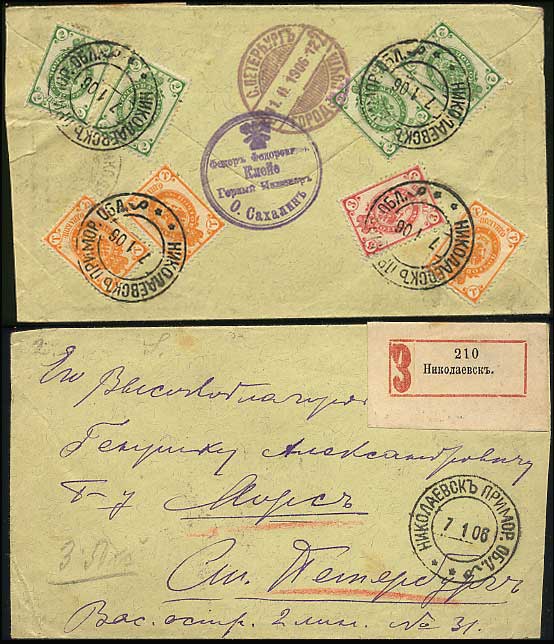 НИКОЛАЕВСКЪ ПРИМОР. ОБЛ.
7 1 06
С.ПЕТЕРБУРГЪ
1906
НИКОЛАЕВСКЪ ПРИМОР. ОБЛ.
7 1 06
Ѳедоръ Ѳедоровичъ
Клейе
Горный Инженеръ
О. Сахалинъ
НИКОЛАЕВСКЪ ПРИМОР. ОБЛ.
7 1 06
НИКОЛАЕВСКЪ ПРИМОР. ОБЛ.
7 1 06
З
210
Николаевскъ.
Его Высокоблагород
Генриху Александровичу
Б-у Морсъ
Сп. Петербургъ
Вас. остр. 2 лин. No 31.
НИКОЛАЕВСКЪ ПРИМОР. ОБЛ.
7 1 06